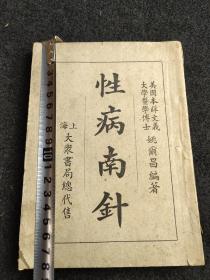 美國本薛文義
大學醫學博士
姚爾昌編著
性病南針
上海
大衆書局總代售